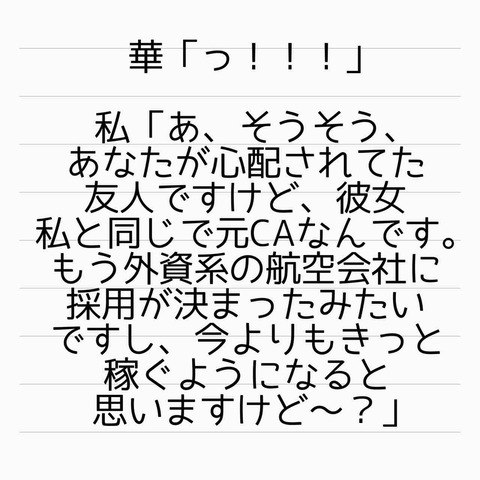 華「っ！！！」
私「あ、そうそう、
あなたが心配されてた
友人ですけど、彼女
私と同じで元CAなんです。
もう外資系の航空会社に
採用が決まったみたい
ですし、今よりもきっと
稼ぐようになると
思いますけど〜？」